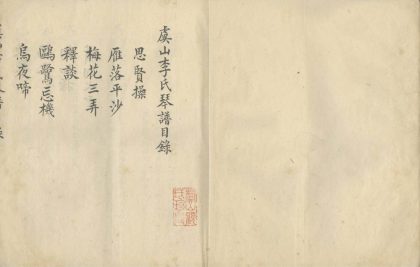 虞山李氏琴譜目錄
思賢操
雁落平沙
梅花三弄
釋談
鷗鷺忘機
烏夜啼